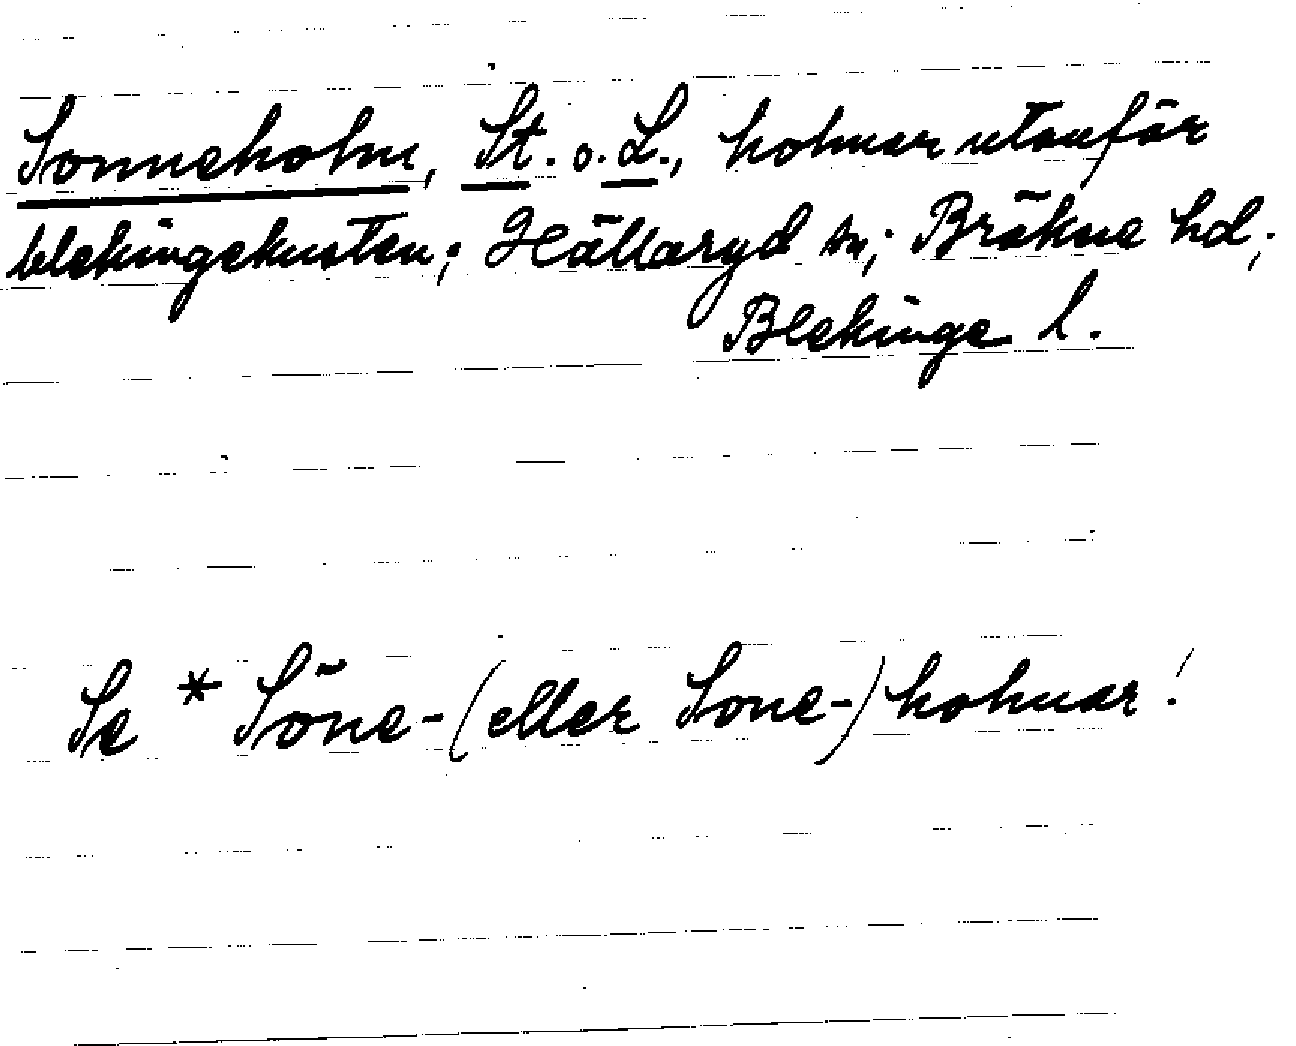 Sonneholm, St. o. L., holmar utanför
blekingekusten; Hällaryd sn; Bräkne hd;
Blekinge l.
Se * Söne-(eller Sone-)holmar!